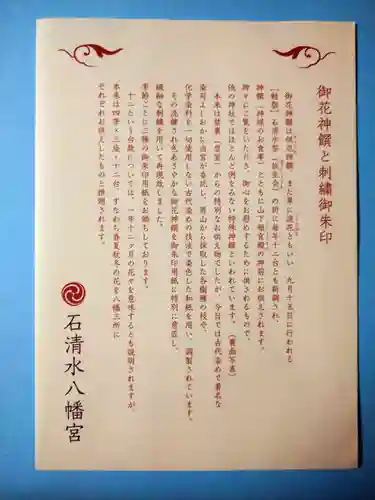 御花神饌と刺繍御朱印
御花神饌は供花神饌、また単に造花ともいい、九月十五日に行われる
【勅祭】石清水祭(放生会)の折に毎年十二台とも新調され、
神饌(神様のお食事)とともに山下頓宮殿の神前にお供えされます。
神々にご覧をいただき、御心をお慰めするために供されるもので、
他の神社ではほとんど例をみない特殊神饌といわれています。(裏面写真)
本来は禁裏(皇室)からの特別なお供え物でしたが、今日では古代染めで著名な
染司よしおかに由宮が委託し、男山から採取した各樹種の枝や、
化学染料を一切使用しない古代染めの技法で染色した和紙を用い、調製されています。
その洗練された色あざやかな御花神饌を御朱印用紙に特別に意匠し、
繊細な刺繍を用いて再現致しました。
季節ごとに三種の御朱印用紙をお頒ちしております。
十二という台数については、一年十二ヶ月の花々を意味するとも説明されますが、
本来は四季×三座=十二台、すなわち春夏秋冬の花を八幡三所に
それぞれお供えしたものと推測されます。
石清水八幡宮